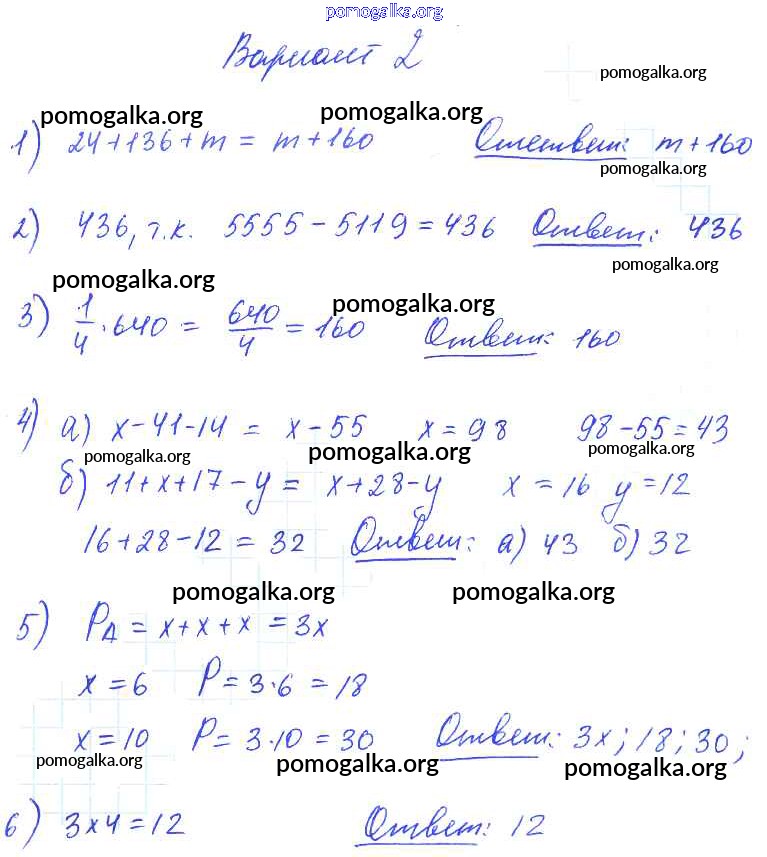 pomogalka.org
Вариант 2
pomogalka.org
pomogalka.org pomogalka.org
1) 24+136+m = m+160 Ответ: m+160
pomogalka.org
2) 436, т.к. 5555-5119=436 Ответ: 436
pomogalka.org
pomogalka.org pomogalka.org
3) 1/4 · 640 = 640/4 = 160 Ответ: 160
4) а) x-41-14 = x-55 x=98 98-55=43
pomogalka.org pomogalka.org pomogalka.org
б) 11+x+17-y = x+28-y x=16 y=12
16+28-12=32 Ответ: а) 43 б) 32
pomogalka.org pomogalka.org
5) P△ = x+x+x = 3x
x=6 P=3·6=18
x=10 P=3·10=30 Ответ: 3x; 18; 30;
pomogalka.org pomogalka.org pomogalka.org
6) 3x4=12 Ответ: 12